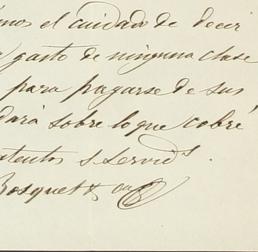 mos el cuidado de decir
gasto de ninguna clase
para pagarse de sus
dará sobre lo que cobré
atentos s. servid.s
Bosquet &